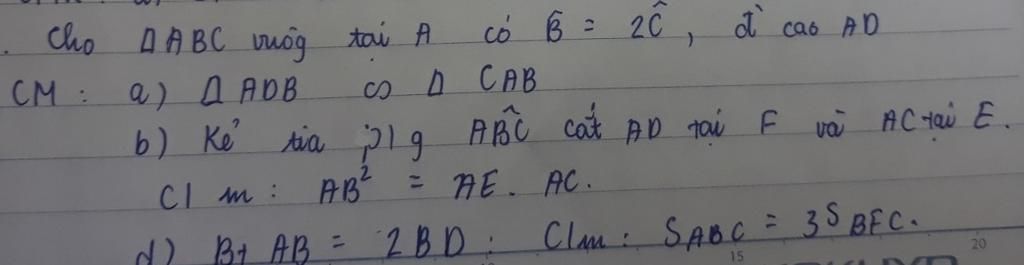 . Cho ΔABC vuôg tại A có B̂ = 2Ĉ, đ̀ cao AD
CM: a) Δ ADB ∽ Δ CAB
b) Kẻ tia p/g ABĈ cắt AD tại F và AC tại E.
C/m: AB² = AE. AC.
d) Bt AB = 2BD: C/m: SABC = 3SBFC.
15
20